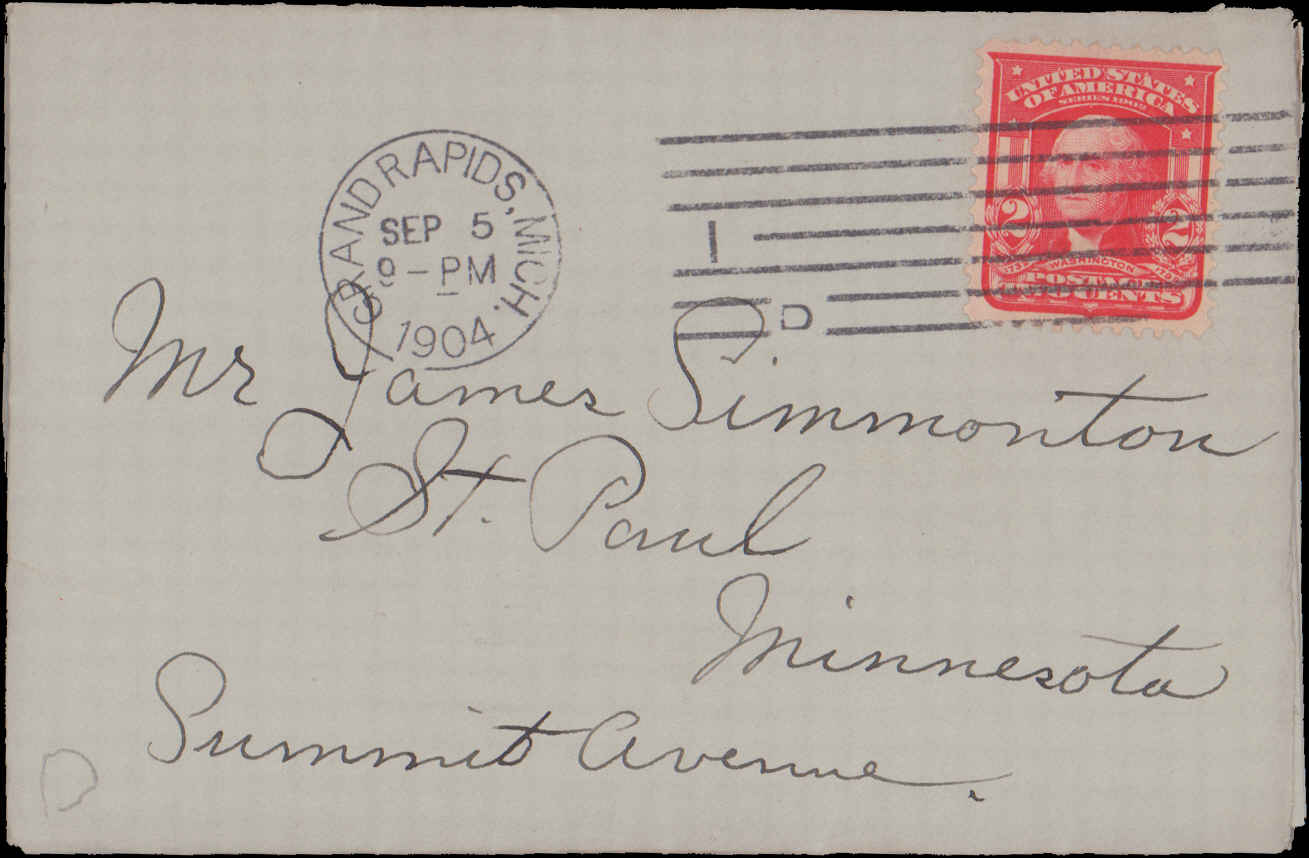 UNITED STATES
OF AMERICA
SERIES 1902
2 2
WASHINGTON
POSTAGE
TWO CENTS
GRAND RAPIDS, MICH.
SEP 5
9 – PM
1904
1
D
Mr James Simmonton
St. Paul
Minnesota
Summit Avenue.